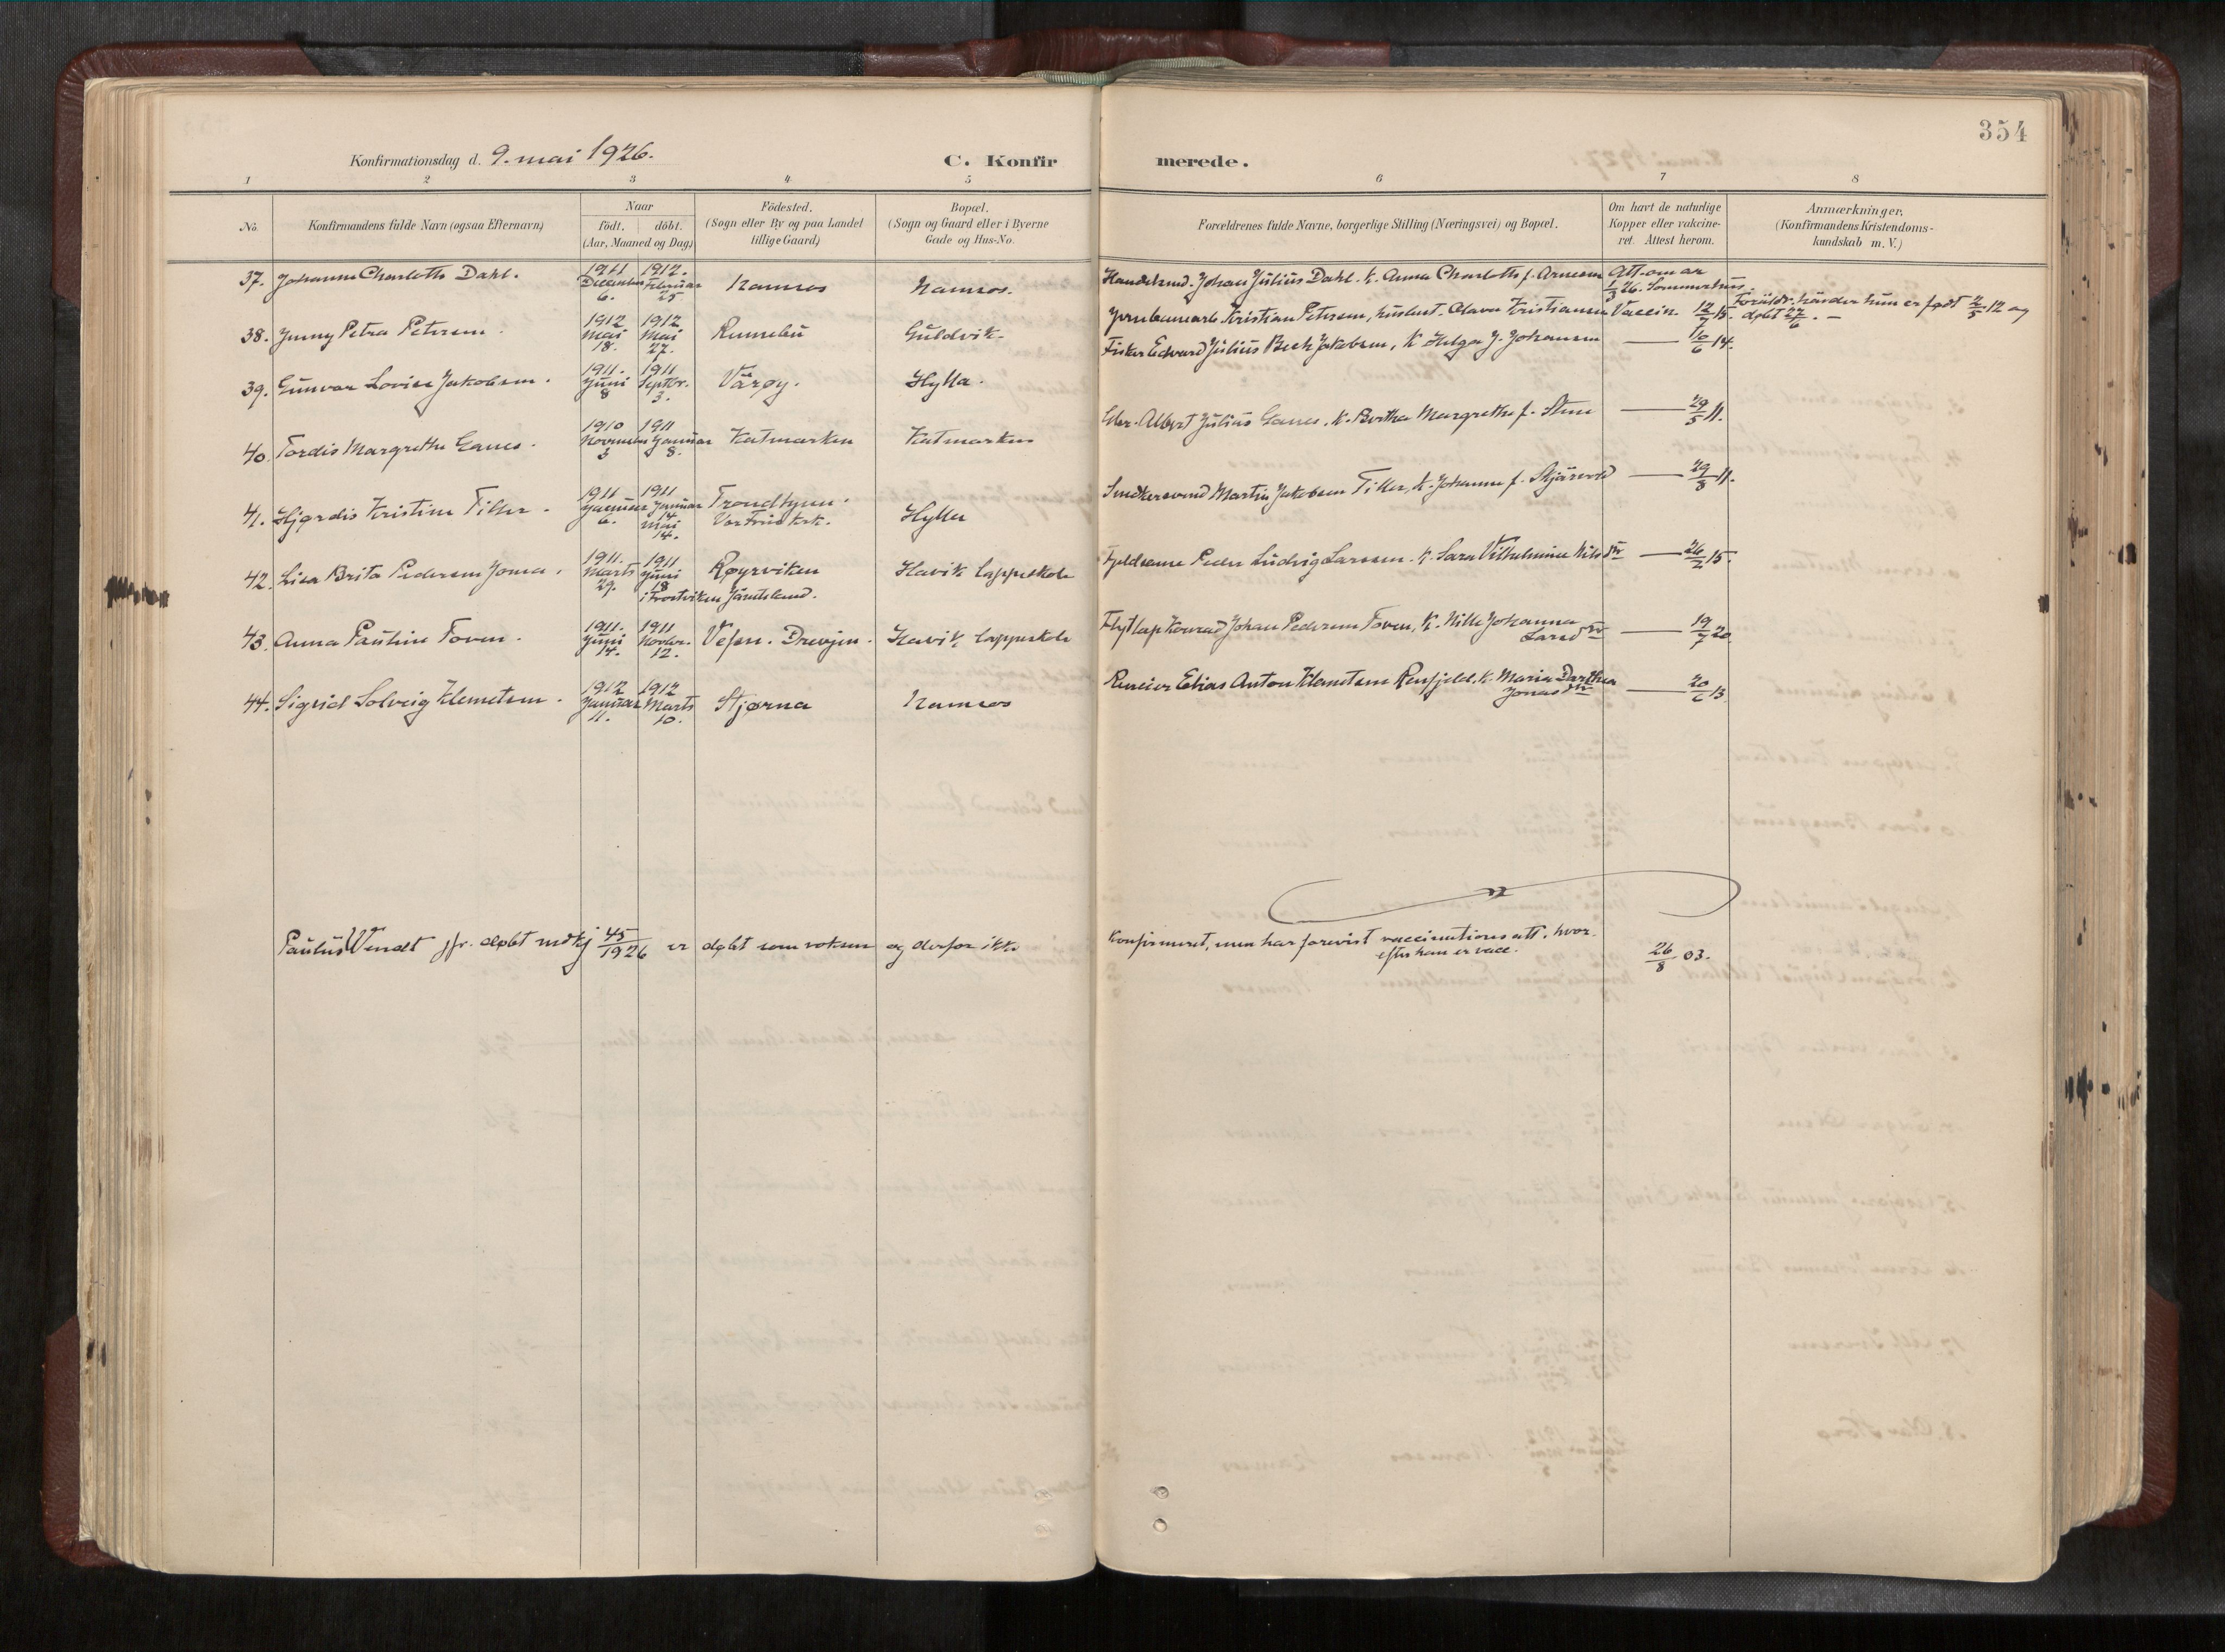 354
Konfirmationsdag d. 9. mai 1926.
C. Konfirmerede.
1 2 3 4 5 6 7 8
No.
Konfirmandens fulde Navn (ogsaa Efternavn)
Naar
födt. döbt.
(Aar, Maaned og Dag)
Födested.
(Sogn eller By og paa Landet
tillige Gaard)
Bopæl.
(Sogn og Gaard eller i Byerne
Gade og Hus-No.
Forældrenes fulde Navne, borgerlige Stilling (Næringsvei) og Bopæl.
Om havt de naturlige
Kopper eller vakcine-
ret. Attest herom.
Anmærkninger,
(Konfirmandens Kristendoms-
kundskab m. V.)
37. Johanne Charlotte Dahl. 1911 December 6. 1912. Februar 25 Namsos Namsos. Handelsmd. Johan Julius Dahl. K. Anna Charlotte f. Arnesen Att. om ar
1/3 26. Sommerhus.
38. Jenny Petra Petersen. 1912 Mai 18. 1912 Mai 27. Rennebu Guldvik Jernbanearb. Kristian Petersen, hustru Olava Kristiansen Vaccin. 12/7 13. Foräldr. hävder hun er født 2/5 12 og
døbt 27/6. —
39. Gunvor Lovise Jakobsen. 1911. Juni 8 1911 Septbr. 3. Värøy. Hylla. Fisker Edvard Julius Bech Jakobsen, K Helga J. Johansen — 16/6 14.
40. Tordis Margrethe Ganes. 1910 November 3 1911 Januar 8. Katmarken Katmarken Gbr. Albert Julius Ganes. K. Bertha Margrethe f. Stene — 29/5 11.
41. Hjørdis Kristine Tiller. 1911 Januar 6. 1911 Januar 14 Mai 14. Trondhjem. Vor Frue kirk. Hylla Smedkersvend Martin Jakobsen Tiller, K. Johanne f. Skjärvold — 29/8 11.
42. Lisa Brita Pedersen Joma. 1911. Marts 29. 1911 Juni 18 Røyrviken Havik lappeskole Fjeldsame Peder Ludvig Larssen. K. Sara Vilhelmine Nilsdtr — 26/2 15.
i Frostviken Jämtsland.
43. Anna Pauline Toven. 1911. Juni 14. 1911 Novbr. 12. Vefsn. Drevjen. Havik lappeskole Flytlap Konrad Johan Pedersen Toven, K. Nille Johanna
Larsdtr — 19/7 20.
44. Sigrid Solveig Klemetsen. 1912 Januar 11. 1912 Marts 10. Stjørna Namsos Reneier Elias Anton Klemetsen Renfjeld. K. Maria Darthea
Jonasdtr — 20/6 13
Paulus Wendt jfr. døbt mdkj 45/1926 er døbt som voksen og derfor ikke Konfirmeret, men har forevist vaccinationsatt. hvor-
efter han er vacc. 26/8 03.